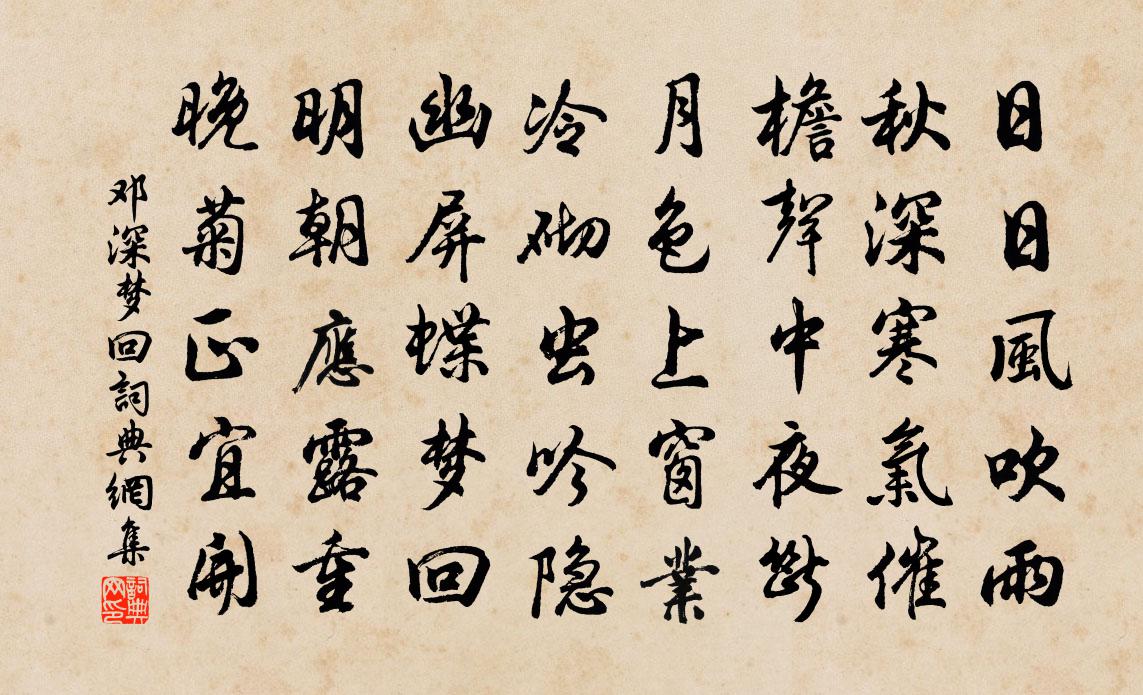 日日風吹雨
秋深寒氣催
檐聲中夜斷
月色上窗業
冷砌虫吟隐
幽屏蝶梦回
明朝應露重
晚菊正宜開
邓深梦回詞典網集
詞典网印